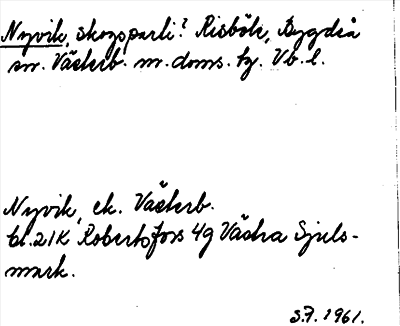 Nyvik, skogsparti? Risböle, Bygdeå
sn. Västerb. n. doms. tg. Vb. l.
Nyvik, ek. Västerb.
bl. 21K Robertsfors 4g Västra Sjuls-
mark.
S.F. 1961.